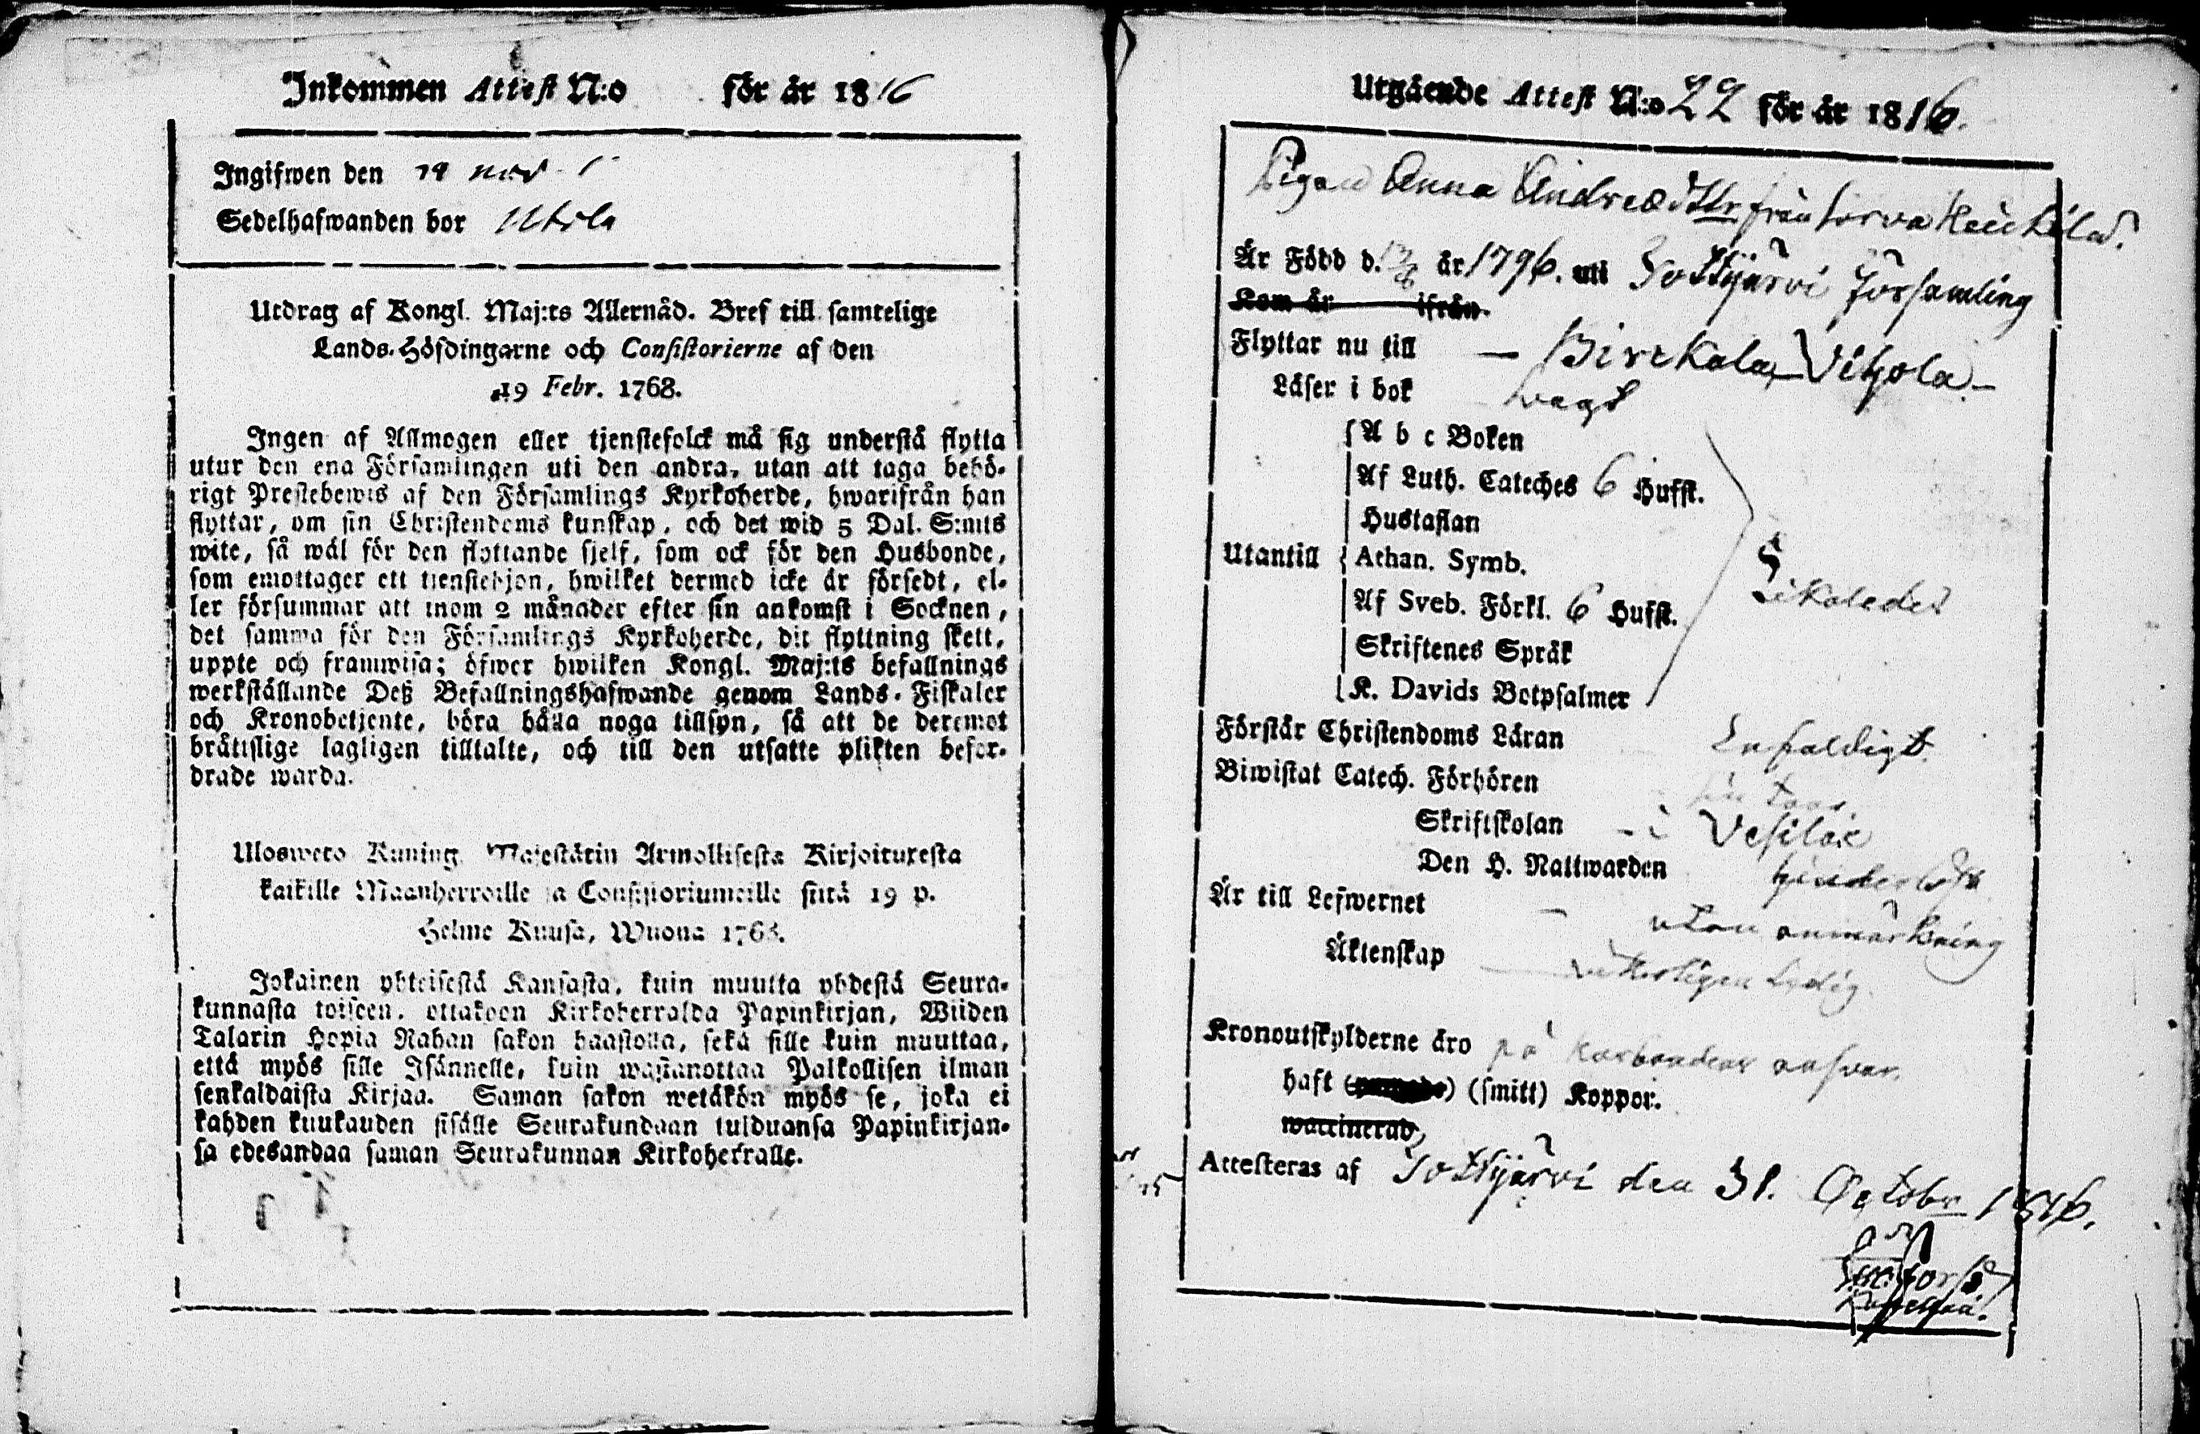 Inkommen Attest N:o för år 1816
Ingifwen den 14 nov.
Sedelhafwanden bor
Utdrag af Kongl. Maj:ts Allernåd. Bref till samtelige
Lands-Höfdingarne och Consistorierne af den
19 Febr. 1768.
Ingen af Allmogen eller tjenstefolck må sig understå flytta
utur den ena Församlingen uti den andra, utan att taga behö-
rigt Prestebewis af den Församlings Kyrkoherde, hwarifrån han
flyttar, om sin Christendoms kunskap, och det wid 5 Dal. S:mts
wite, så wäl för den flyttande sjelf, som ock för den Husbonde,
som emottager ett tienstehjon, hwilket dermed icke är försedt, el-
ler försummar att inom 2 månader efter sin ankomst i Socknen,
det samma för den Församlings Kyrkoherde, dit flyttning skett,
uppte och framwisa; öfwer hwilken Kongl. Maj:ts befallnings
werkställande Deß Befallningshafwande genom Lands-Fiskaler
och Kronobetjente, böra hålla noga tillsyn, så att de deremot
bråttslige lagligen tilltalte, och till den utsatte plikten befor-
drade warda.
Ulosweto Kuning. Majestätin Armollisesta Kirjoituxesta
kaikille Maanherroille ja Consistoriumeille siitä 19 p.
Helme Kuusa, Wuona 1768.
Jokainen yhteisestä Kansasta, kuin muutta yhdestä Seura-
kunnasta toiseen, ottakoon Kirkoherralda Papinkirjan, Wiiden
Talarin Hopia Rahan sakon haastolla, sekä sille kuin muuttaa,
että myös sille Isännelle, kuin wastanottaa Palkollisen ilman
senkaldaista Kirjaa. Saman sakon wetäkön myös se, joka ei
kahden kuukauden sisälle Seurakundaan tulduansa Papinkirjan-
sa edesandaa saman Seurakunnan Kirkoherralle.
Utgående Attest N:o 22 för år 1816.
Pigan Anna Andreæ dttr från
Är Född d. 13/8 år 1796. uti Tottijärvi Församling
Kom år ifrån
Flyttar nu till – Birckala, Vihola –
Läser i bok svagt
A b c Boken
Af Luth. Cateches 6 Hufst.
Hustaflan
Utantill Athan. Symb. Likaledes
Af Sveb. Förkl. 6 Hufst.
Skriftenes Språk
K. Davids Botpsalmer
Förstår Christendoms Läran Enfaldigt
Biwistat Catech. Förhören
Skriftskolan – i Vesilax
Den H. Nattwarden
Är till Lefwernet – utan anmärkning
Äktenskap – Ledig
Kronoutskylderne äro på husbondens ansvar.
haft (smitt) Koppor.
waccinerad,
Attesteras af Tottijärvi den 31. Octobr 1816.